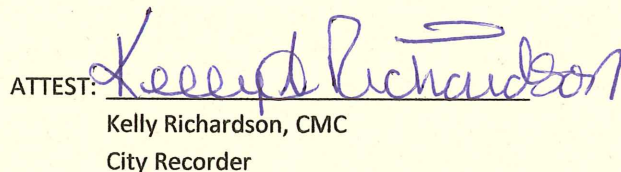 ATTEST: Kelly Richardson
Kelly Richardson, CMC
City Recorder